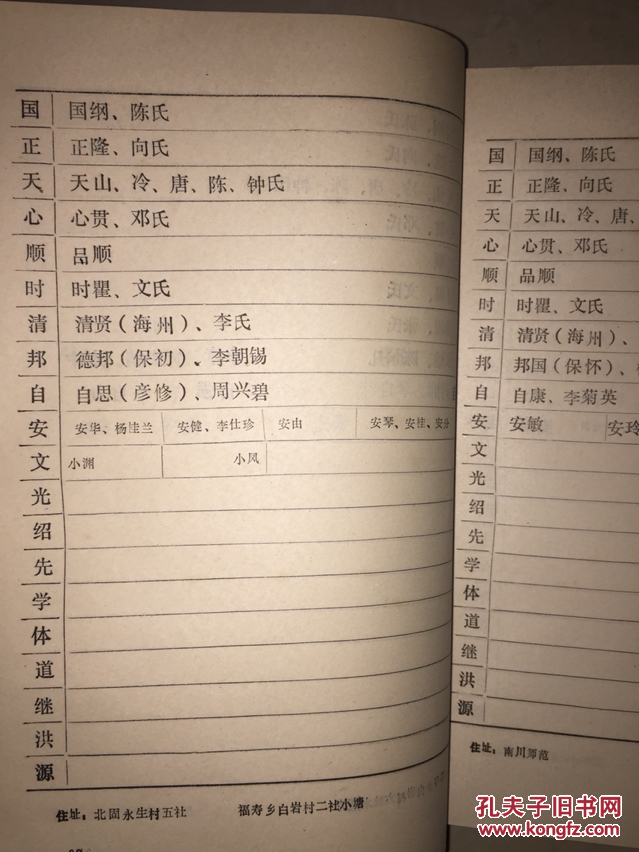 国 国纲、陈氏
正 正隆、向氏
天 天山、冷、唐、陈、钟氏
心 心贯、邓氏
顺 品顺
时 时瞿、文氏
清 清贤(海州)、李氏
邦 德邦(保初)、李朝锡
自 自思(彦修)、周兴碧
安 安华、杨佳兰 安健、李仕珍 安由 安琴、安佳、安分
文 小渊 小凤
光
绍
先
学
体
道
继
洪
源
住址:北固永生村五社 福寿乡白岩村二社小塘
国 国纲、陈氏
正 正隆、向氏
天 天山、冷、唐、
心 心贯、邓氏
顺 品顺
时 时瞿、文氏
清 清贤(海州)、
邦 邦国(保怀)、
自 自康、李菊英
安 安敏 安玲
文
光
绍
先
学
体
道
继
洪
源
住址:南川师范
孔夫子旧书网
www.kongfz.com